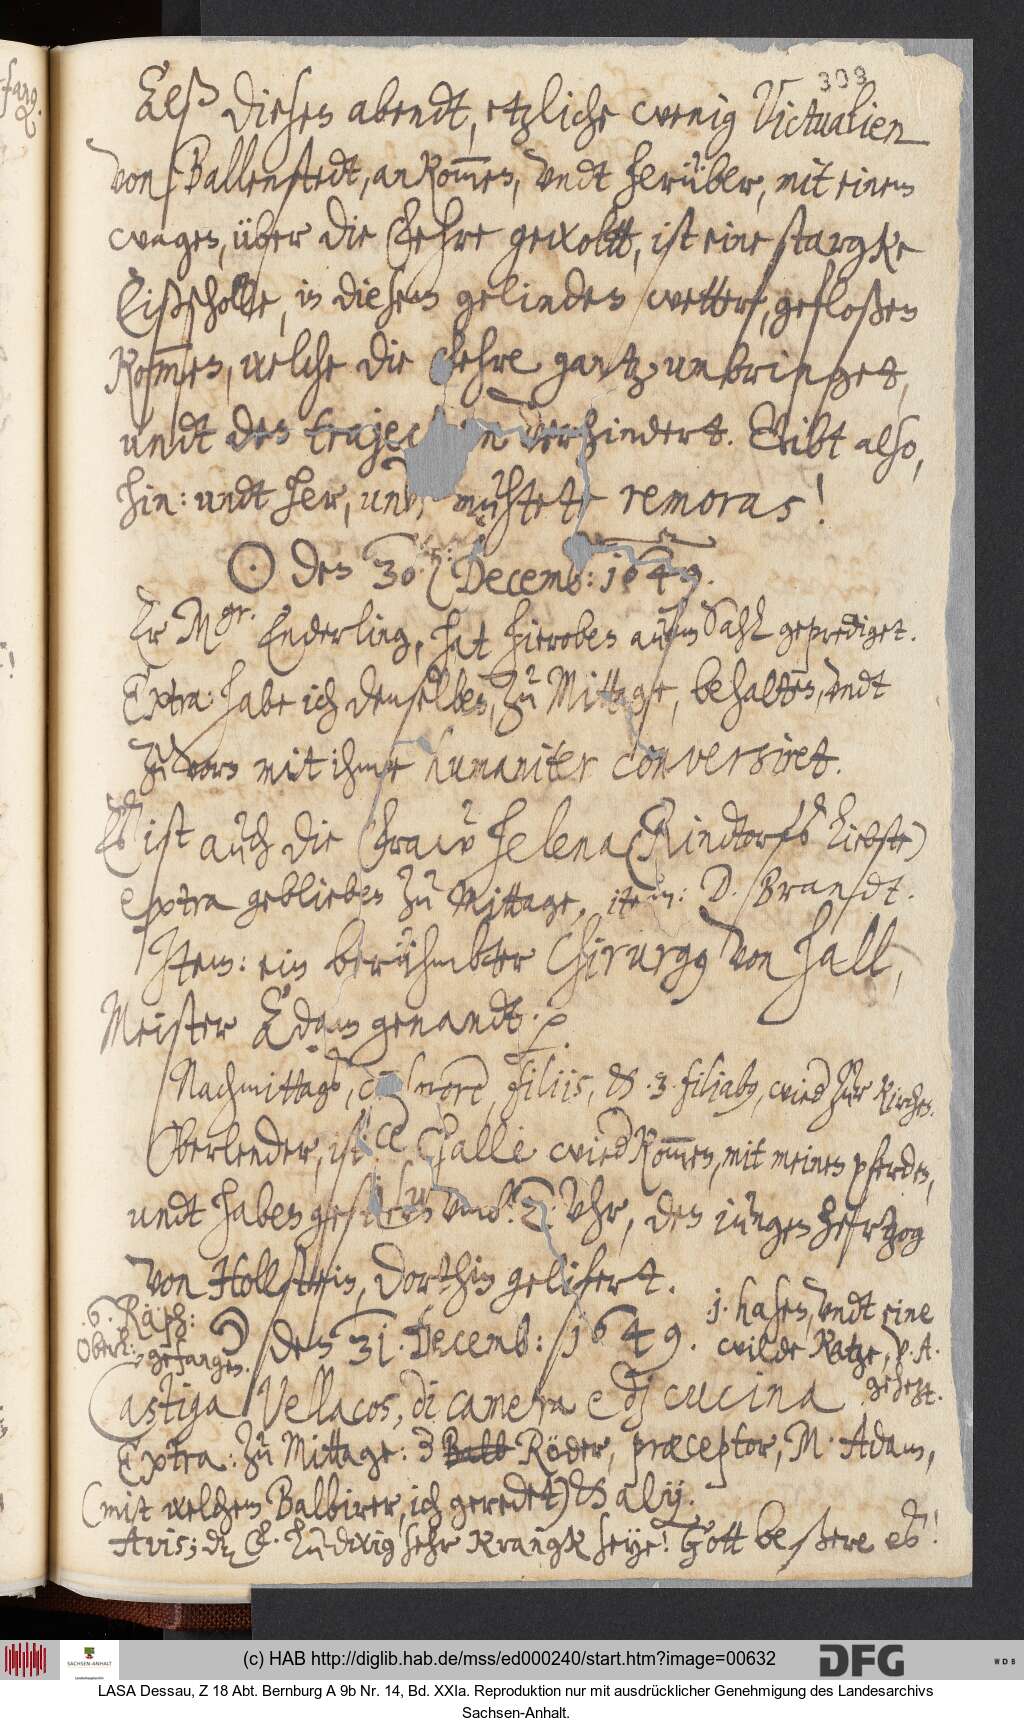 303
Alß diesen abendt, etzliche wenig Victualien
von Ballenstedt, ankom̅en, undt herüber, mit einem
wagen, über die Fehre gewoltt, ist eine stargke
Eißscholle, in diesem gelinden wetter, gefloßen
kom̅en, welche die Fehre gantz umbringet,
undt den trajec verhindert. Gibt also,
hin: undt her, remoras!
☉ den 30. Decemb: 1649.
Er Mgr. Enderling, hat hieroben aufm Sahl geprediget.
Extra: habe ich denselben, zu Mittage, behalten, undt
zuvorn mit ihme humaniter conversiret.
Es ist auch die Fraw Helena (Rindtorfs Liebste)
extra geblieben zu Mittage, item: D. Brandt.
Item: ein berühmbter Chirurgg von Hall,
Meister Adam genandt. p.
Nachmittags, cum sorore, filiis, et .3. filiab9, wied zur kirchen.
Oberlender, ist Halle wied kom̅en, mit meinen pferden,
undt haben umb. 2. Uhr, den jungen Hertzog
von Hollstein, dorthin gelifert.
.6. Räph:
Oberl: gefangen.
☽ den 31. Decemb: 1649.
1. hasen, undt eine
wilde Katze, p. A.
gehezt.
Castiga Vellacos, di camera e di cucina
Extra: zu Mittage: 3 Röder, præceptor, M. Adam,
(mit welchem Balbirer, ich geredet) et alij.
Avis; dz E. Ludwig sehr krangk seye! Gott beßere es!
(c) HAB http://diglib.hab.de/mss/ed000240/start.htm?image=00632
SACHSEN-ANHALT
DFG
WDB
LASA Dessau, Z 18 Abt. Bernburg A 9b Nr. 14, Bd. XXIa. Reproduktion nur mit ausdrücklicher Genehmigung des Landesarchivs
Sachsen-Anhalt.